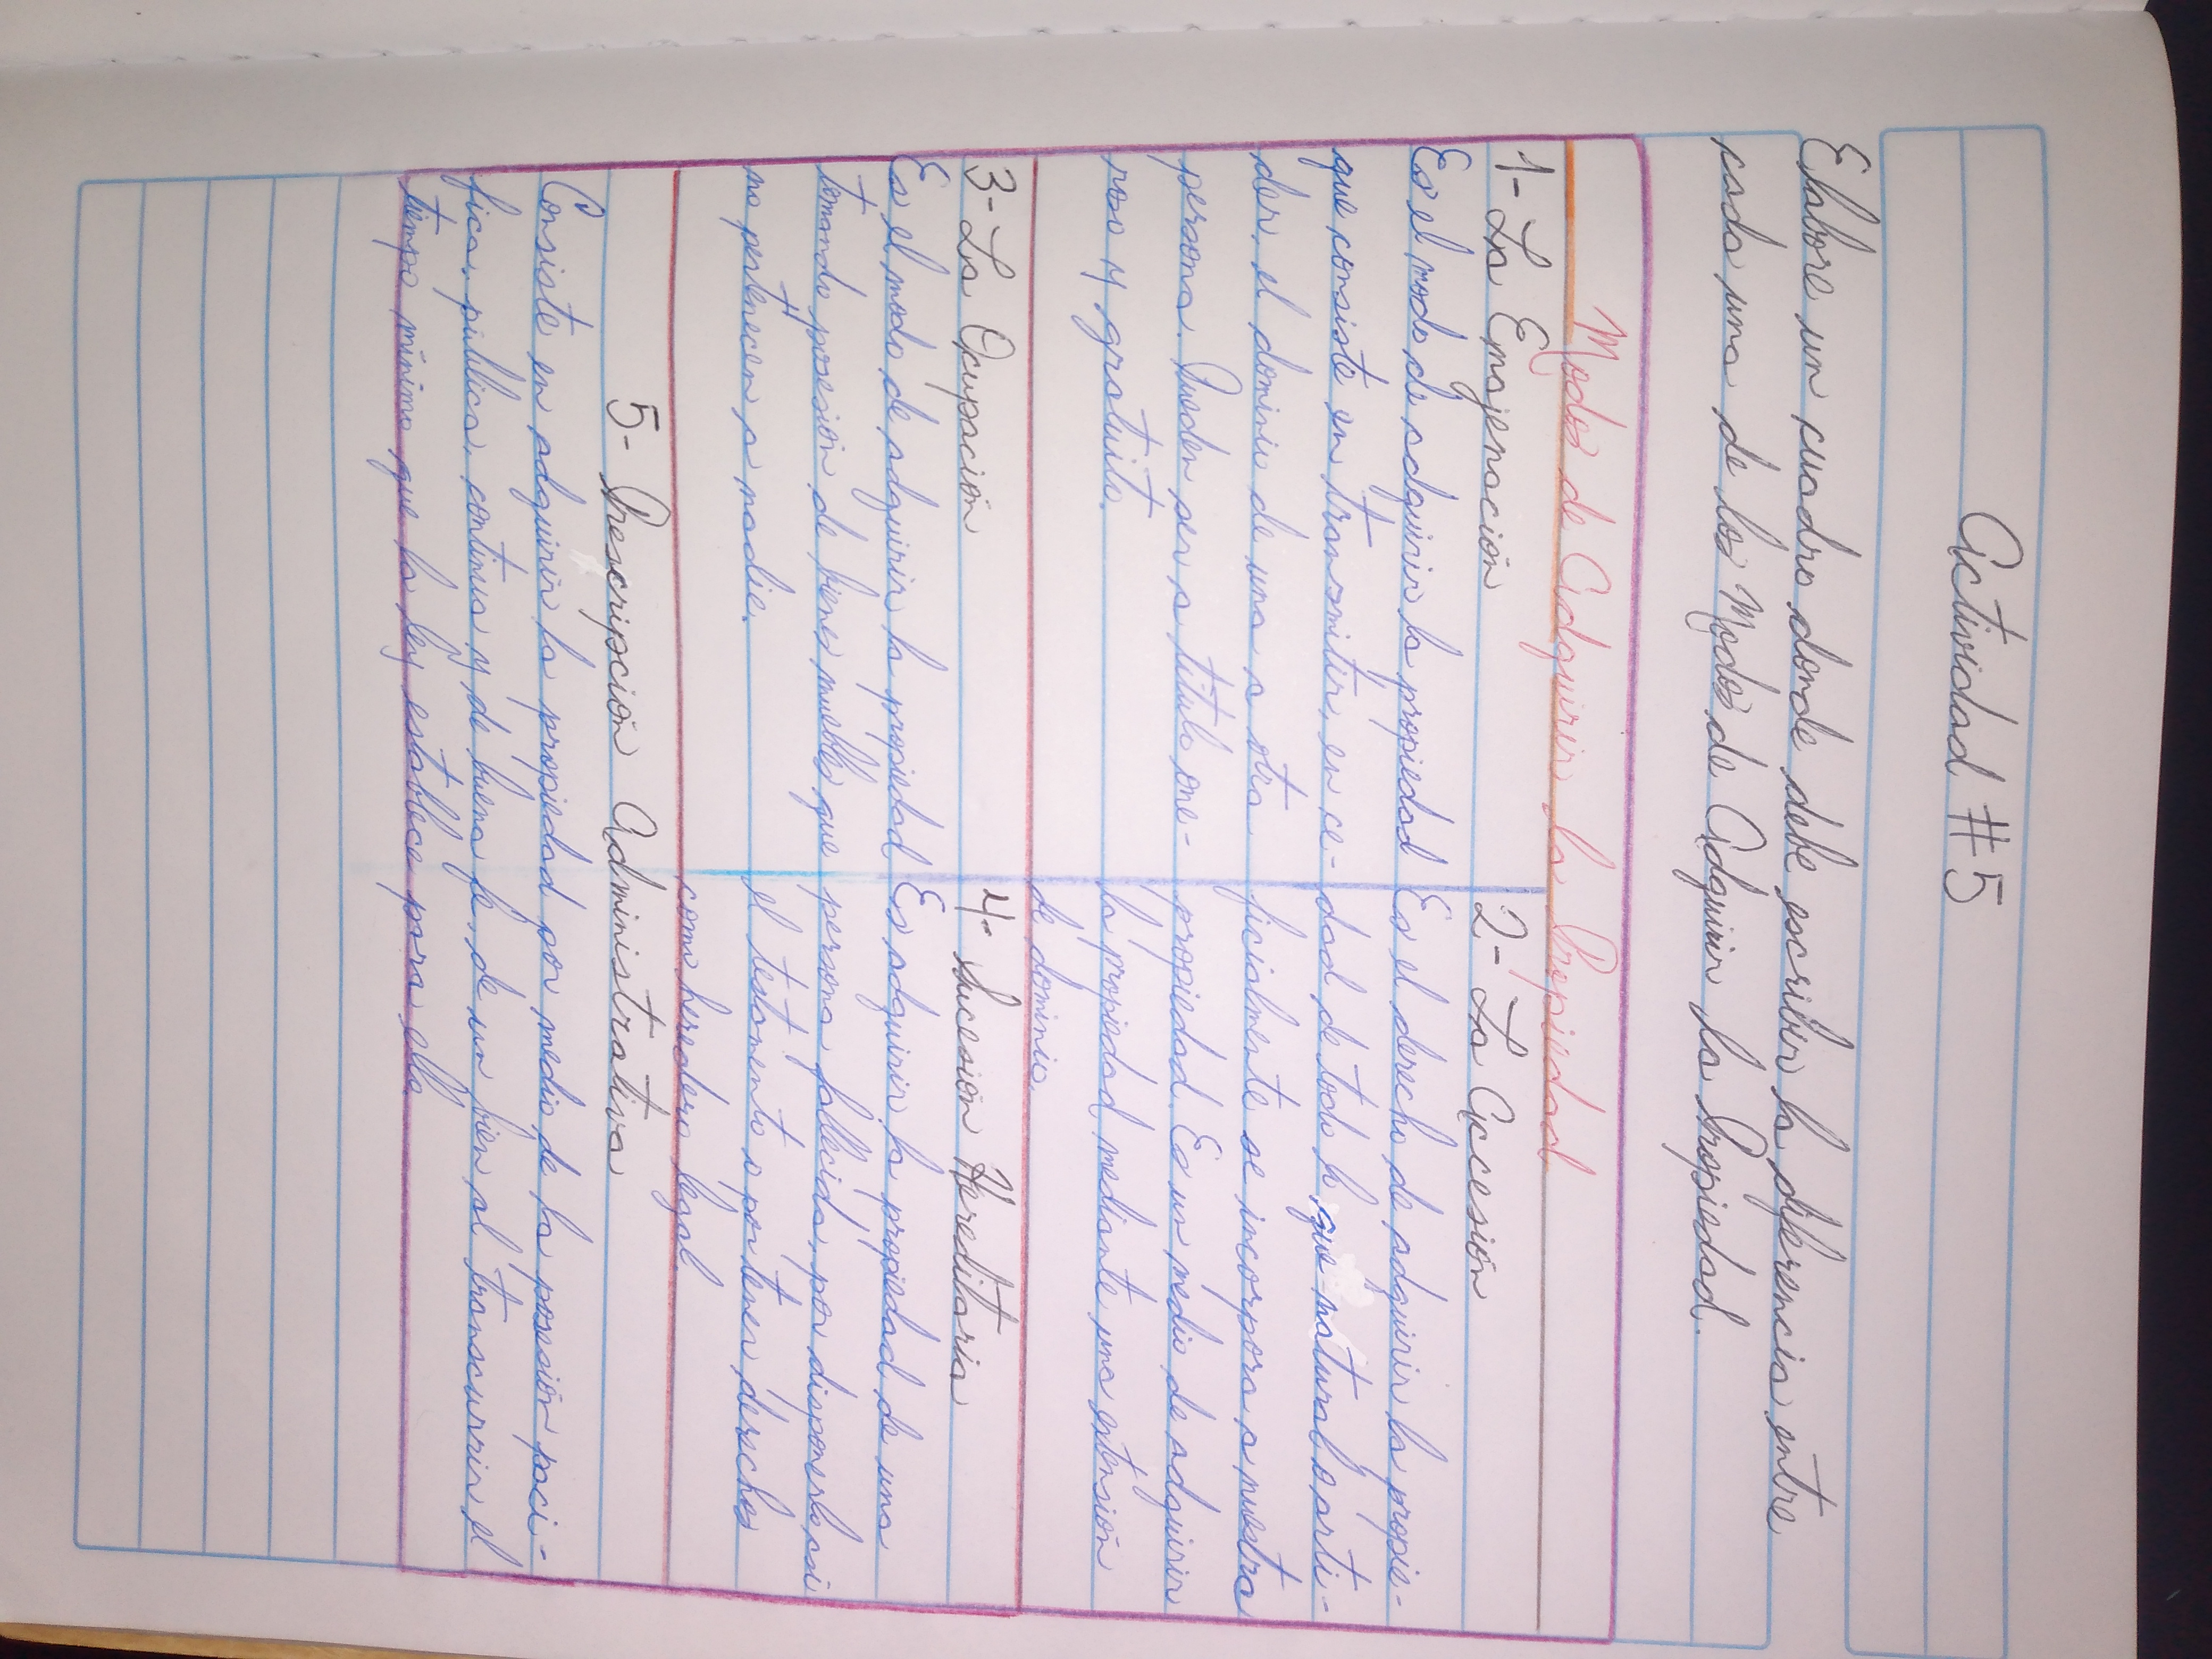 Actividad #5
Elabore un cuadro donde debe escribir la diferencia entre
cada una de los Modos de Adquirir la Propiedad.
Modos de Adquirir la Propiedad
1- La Enajenación
Es el modo de adquirir la propiedad
que consiste en transmitir, en ce-
der, el dominio de una a otra
persona. Pueden ser a título one-
roso y gratuito.
2- La Accesión
Es el derecho de adquirir la propie-
dad de todo lo que natural o arti-
ficialmente se incorpora a nuestra
propiedad. Es un medio de adquirir
la propiedad mediante una extensión
de dominio.
3- La Ocupación
Es el modo de adquirir la propiedad
tomando posesión de bienes muebles que
no pertenecen a nadie.
4- Sucesión Hereditaria
Es adquirir la propiedad de una
persona fallecida, por disponerlo así
el testamento o por tener derechos
como heredero legal.
5- Prescripción Administrativa
Consiste en adquirir la propiedad por medio de la posesión pací-
fica, pública, continua y de buena fe, de un bien al transcurrir el
tiempo mínimo que la ley establece para ello.